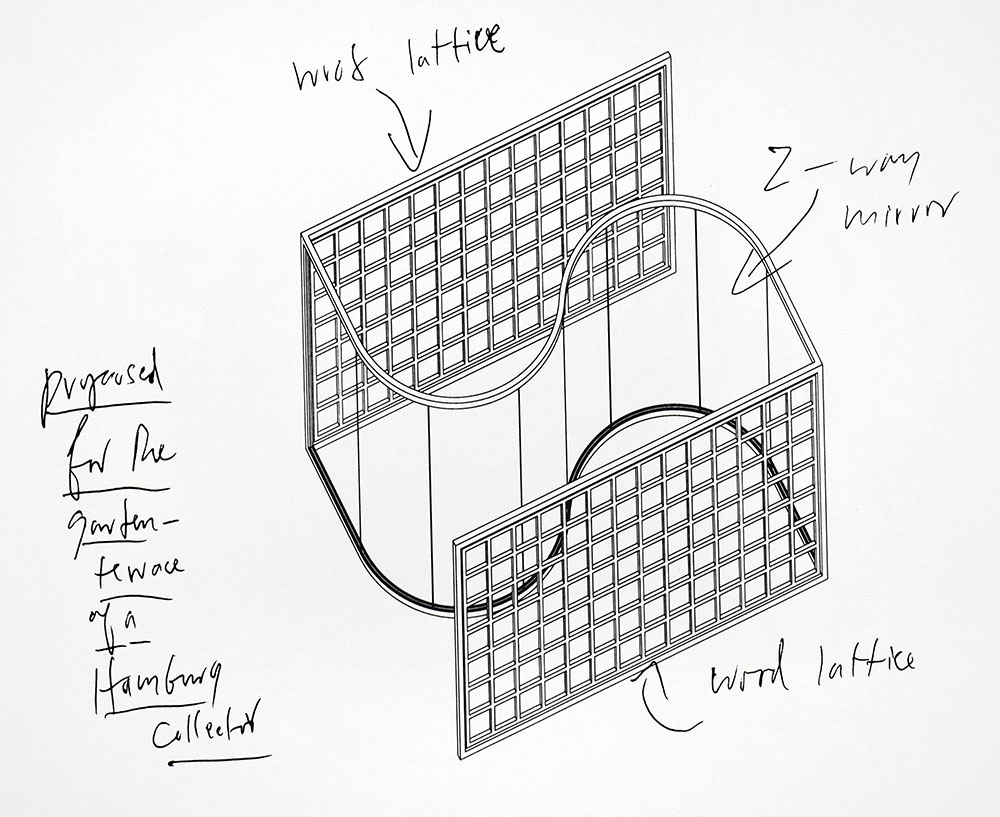 wood lattice
2-way
mirror
proposed
for the
garten-
terrace
of a
Hamburg
collector
wood lattice